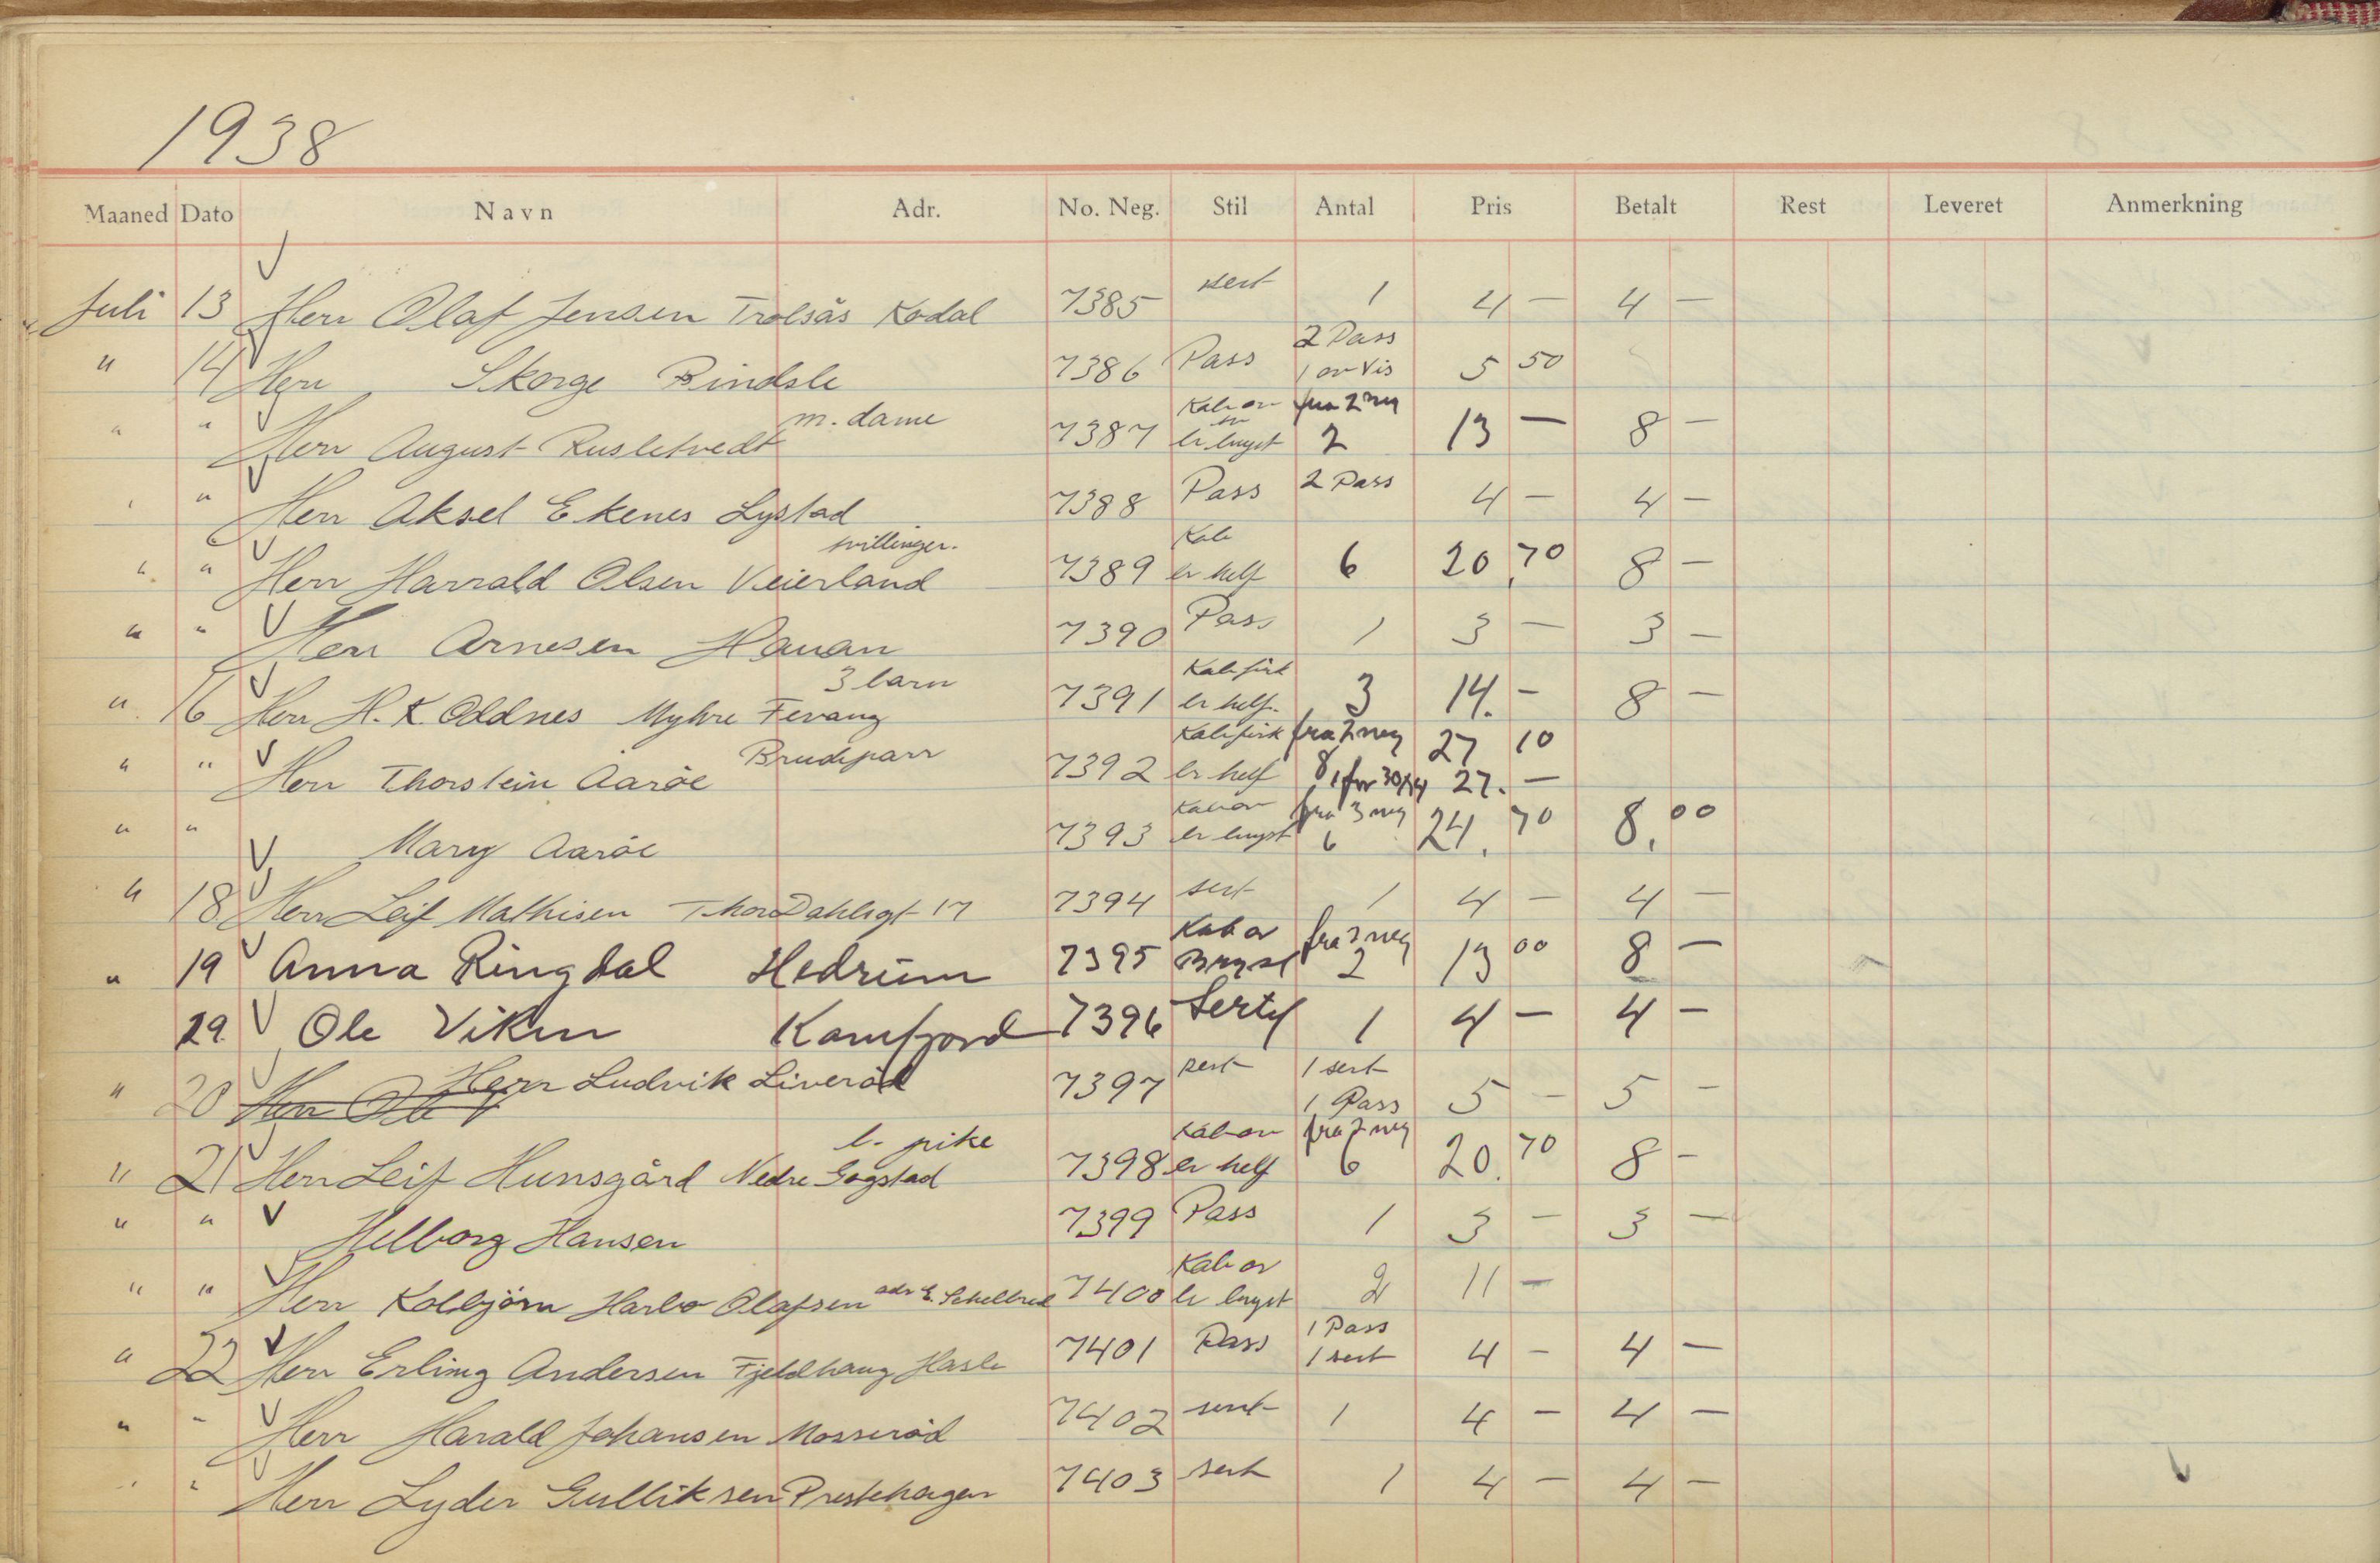 1938
Maaned Dato Navn Adr. No. Neg. Stil Antal Pris Betalt Rest Leveret Anmerkning
Juli 13 Herr Olaf Jensen Trolsås Kodal 7385 sert 1 4 — 4 —
" 14 Herr Skorge Rindsle 7386 Pass 2 Pass 1 av Vis 5 50
" " Herr August Rusletvedt m. dame 7387 Kab or fra 2 neg 2 13 — 8 —
" " Herr Aksel Ekenes Lystad 7388 Pass 2 Pass 4 — 4 —
" " Herr Harrald Olsen Veierland tvillinger. 7389 Kab er helf 6 20,70 8 —
" " Herr Arnesen Hauan 7390 Pass 1 3 — 3 —
" 16 Herr H. K. Oddnes Myhre Fevang 3 barn 7391 er helf. 3 14. — 8 —
" " Herr Thorstein Aarøe Brudeparr 7392 er helf fra 2 neg 27 10
8 1 for 30/24 27. —
" " Mary Aarøe 7393 fra 3 neg 6 24. 70 8.00
" 18 Herr Leif Mathisen Thor Dahlsgt 17 7394 sert 1 4 — 4 —
" 19 Anna Ringdal Hedrum 7395 Kab or Bryst fra 2 neg 2 13 00 8 —
19. Ole Viken Kamfjord 7396 Sertf 1 4 — 4 —
" 20 Herr Ole Herr Ludvik Liverød 7397 sert 1 sert 1 Pass 5 — 5 —
" 21 Herr Leif Hunsgård Nedre Gogstad l. pike 7398 Kab or er helf fra 2 neg 6 20. 70 8 —
" " Helborg Hansen 7399 Pass 1 3 — 3 —
" " Herr Kolbjørn Harbo Olafsen adr E. 7400 Kab or br bryst 2 11 —
" 22 Herr Erling Andersen Fjeldhaug Hasle 7401 Pass 1 Pass 1 sert 4 — 4 —
" " Herr Harald Johansen Mosserød 7402 sert 1 4 — 4 —
" " Herr Lyder Gulliksen Prestehagen 7403 sert 1 4 — 4 —